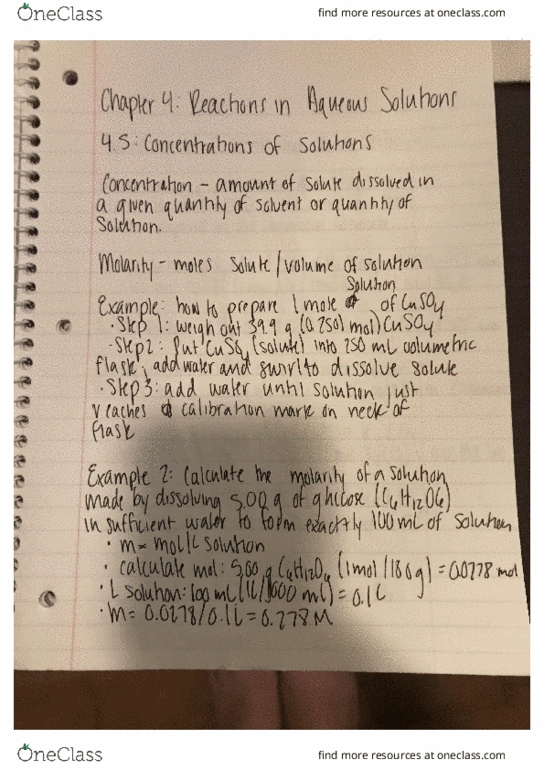 OneClass
find more resources at oneclass.com
Chapter 4: Reactions in Aqueous Solutions
4.5: Concentrations of Solutions
Concentration - amount of solute dissolved in
a given quantity of solvent or quantity of
Solution.
Molarity - moles Solute/volume of solution
Solution
Example: how to prepare 1 mole of CuSO4
• Step 1: weigh out 39.9 g (0.250 mol) CuSO4
• Step 2: Put CuSO4 (solute) into 250 mL volumetric
flask, add water and swirl to dissolve solute
• Step 3: add water until solution just
reaches calibration mark on neck of
flask
Example 2: Calculate the molarity of a solution
made by dissolving 5.00 g of glucose (C6H12O6)
in sufficient water to form exactly 100 mL of solution
• m= mol/L solution
• calculate mol: 5.00 g C6H12O6 (1mol/180g) = 0.0278 mol
• L solution: 100 mL (1L/1000 mL) = 0.1L
• M= 0.0278/0.1L = 0.278 M
OneClass
find more resources at oneclass.com